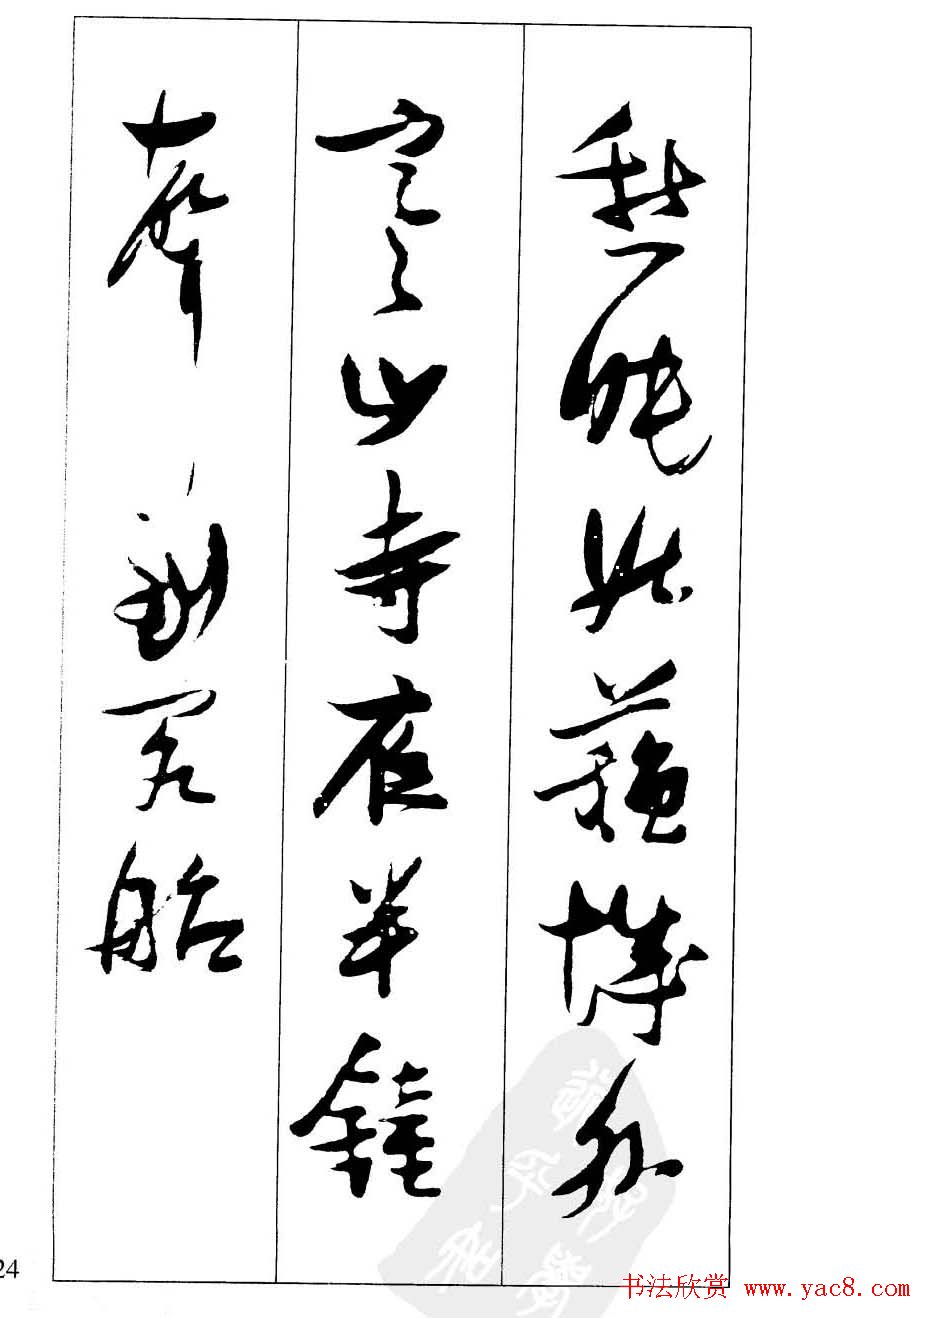 愁眠姑蘇城外
寒山寺夜半鐘
聲到客船
24
书法欣赏 www.yac8.com